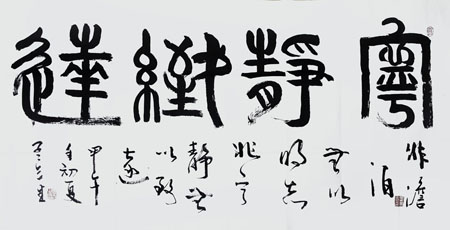 寧靜致遠
非澹
泊
無以
明志
非寧
靜無
以致
遠
甲午
初夏